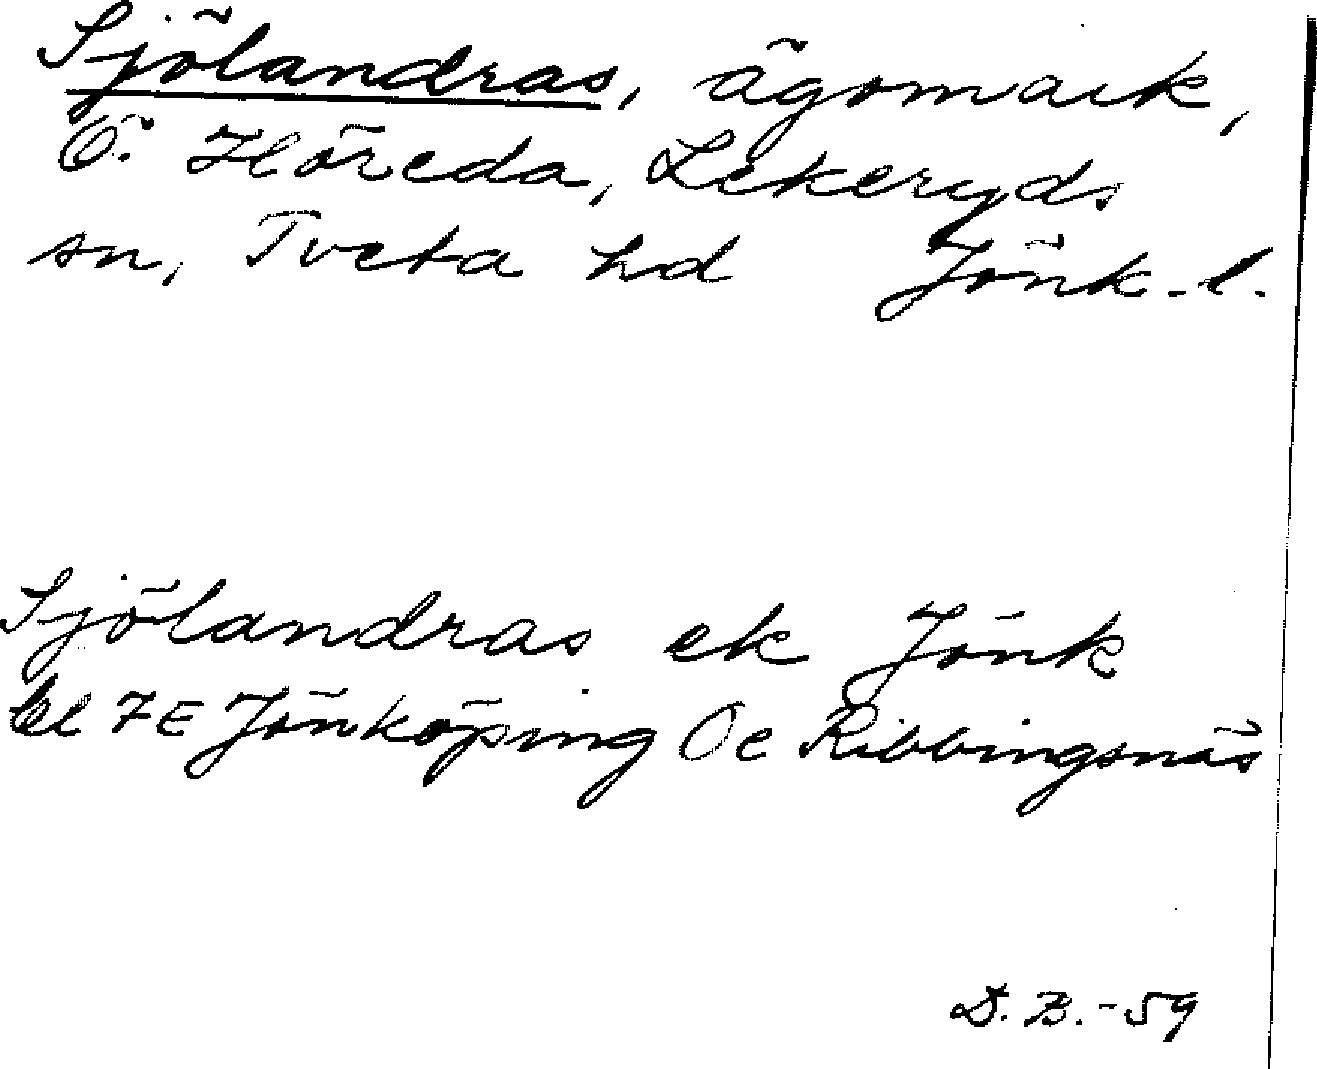 Sjölandras, ägomark,
Ö. Höreda, Lekeryds
sn, Tveta hd Jönk. l.
Sjölandras ek Jönk
bl 7E Jönköping Oe Ribbingsnäs
D. B. -59